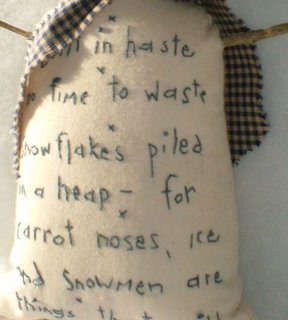 Built in haste
no time to waste
snowflakes piled
in a heap - for
carrot noses, ice
and snowmen are
things that